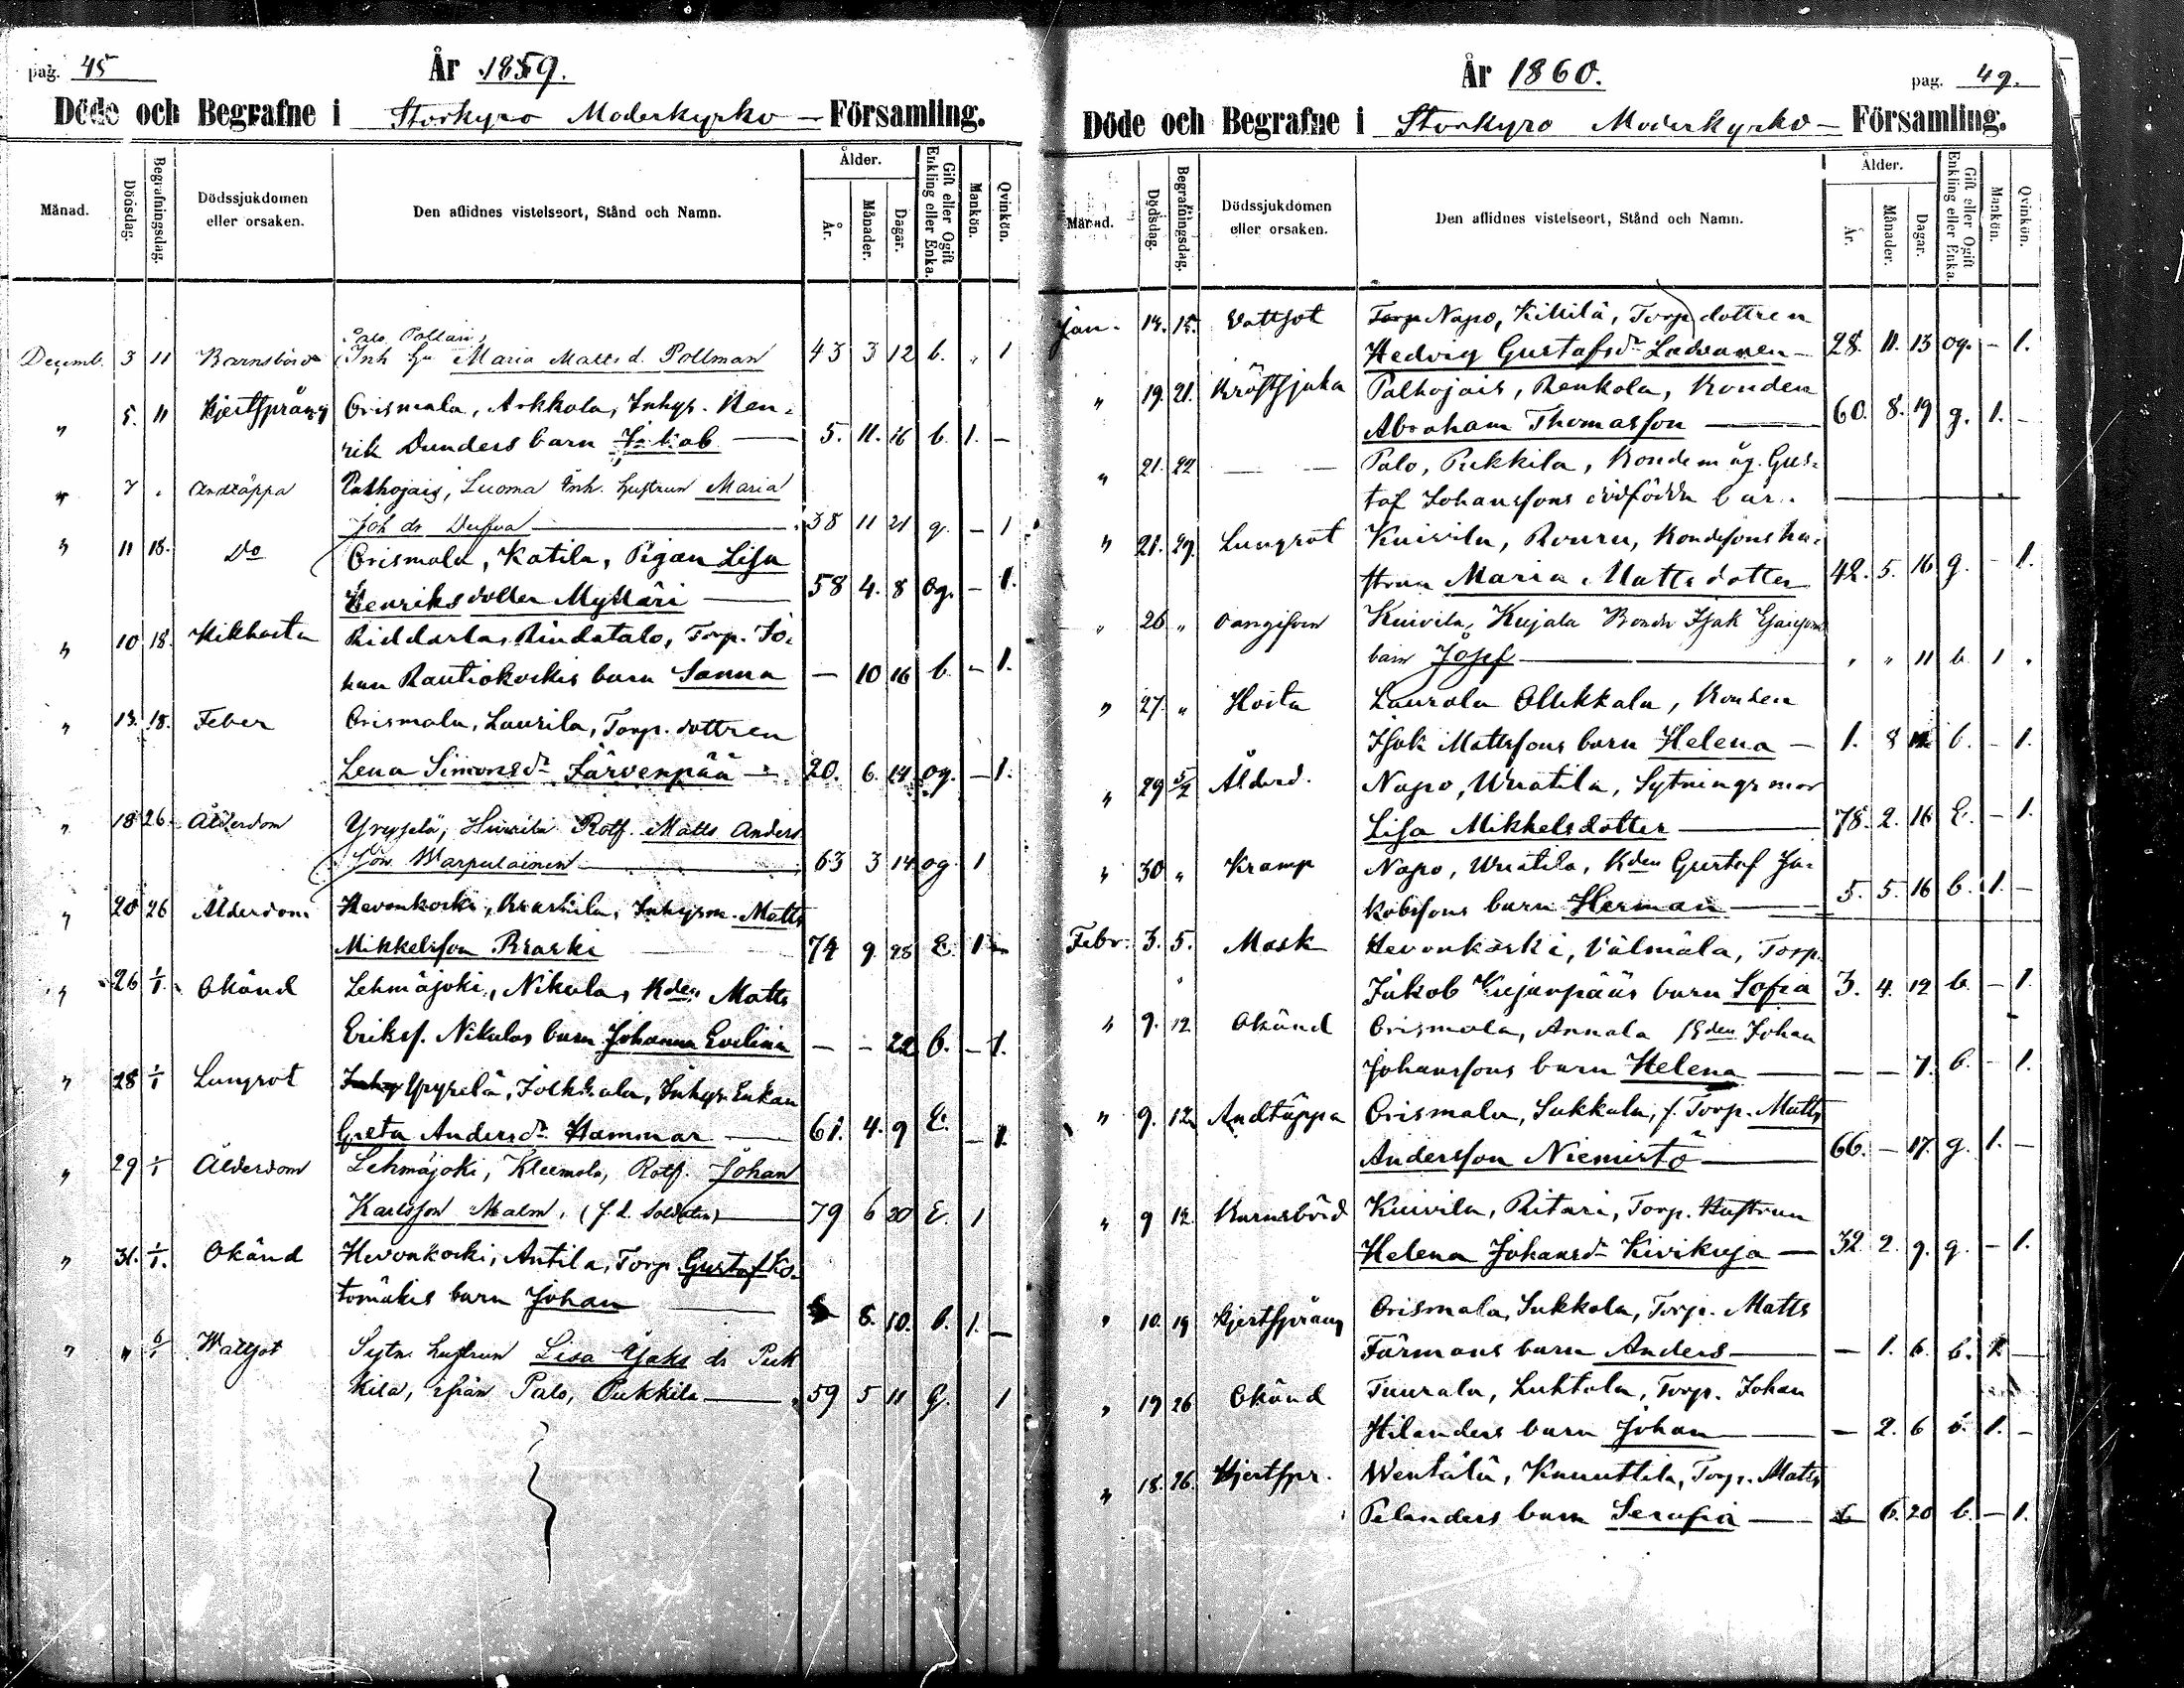 pag. 45
År 1859.
Döde och Begrafne i Storkyro Moderkyrko - Församling.
Månad. Dödsdag. Begrafningsdag. Dödssjukdomen eller orsaken. Den aflidnes vistelseort, Stånd och Namn. Ålder. År. Månader. Dagar. Gift eller Ogift Enkling eller Enka. Mankön. Qvinkön.
Palo
Decemb. 3 11 Barnsbörd Inh hu Maria Matts d. Pollman 43 3 12 b. " 1
" 5. 11 Hjertsprång Orismala, Arkkola, Inhys. Hen-
rik Dunders barn Jakob — 5. 11. 16 b. 1. —
" 7 " Andtäppa Palhojais, Luoma Inh. hustrun Maria
Joh dr Dufva — 38 11 21 g. — 1
" 11 18. Do Orismala, Katila, Pigan Lisa
Henriksdotter Mylläri — 58 4. 8 Og. — 1.
" 10 18. Kikhosta Riddarla, Rindatalo, Torp. Jo-
han Rautiokoskis barn Sanna — 10 16 b. — 1.
" 13. 18. Feber Orismala, Laurila, Torp. dottren
Lena Simonsdr Järvenpää — 20. 6. 14 og. — 1.
" 18 26 Ålderdom Matts Anders
son Warpulainen — 63 3 14 og 1
" 20 26 Ålderdom Hevonkoski, Inhysm. Matts
Mikkelsson 74 9. 28 E. 1 —
" 26 1/1. Okänd Lehmäjoki, Nikula, Bden Matts
Eriksf. Nikulas barn Johanna Evelina — — 22 b. — 1.
" 28 1/1 Lungrot Inhy Ypyrelä, Jockkala, Inhys. Enkan
Greta Andersdr. Hammar — 61. 4. 9 E. — 1.
" 29 1/1 Ålderdom Lehmäjoki, Kleemola, Rotf. Johan
Karlsson Malm, (f.d. Soldaten) — 79 6 20 E. 1
" 31. 1/1. Okänd Hevonkoski, Antila, Torp. Gustaf Ko-
tomäkis barn Johan — 8. 10. b. 1. —
" " 6/1 Wattsot Sytn. hustrun Lisa Isaks dr Puk
kila, ifrån Palo, Pukkila — 59 5 11 G. 1
År 1860.
pag. 49.
Döde och Begrafne i Storkyro Moderkyrko - Församling.
Månad. Dödsdag. Begrafningsdag. Dödssjukdomen eller orsaken. Den aflidnes vistelseort, Stånd och Namn. Ålder. År. Månader. Dagar. Gift eller Ogift Enkling eller Enka. Mankön. Qvinkön.
Jan. 14. 15. Vattsot Torp Napo, Kiikilä, Torp. dottren
Hedvig Gustafsdr — 28. 11. 13 og. — 1.
" 19. 21. Kräftsjuka Palhojais, Renkola, Bonden
Abraham Thomasson — 60. 8. 19 g. 1. —
" 21. 22 — — Palo, Pukkila, Bondemåg. Gus-
taf Johanssons dödfödda barn —
" 21. 29. Lungrot Kuivila, Rouru, Bondesons hu-
strun Maria Mattsdotter 42. 5. 16 g. — 1.
" 26 " Kuivila, Kujala Bonden Isak
barn Josef — " " 11 b 1 "
" 27. " Hosta Laurola Ollikkala, Bonden
Isak Mattssons barn Helena — 1. 8 b. — 1.
" 29 5/2 Ålderd. Napo, Uuatila, Sytningsmor
Lisa Mikkelsdotter — 78. 2. 16 E. — 1.
" 30 " Kramp Napo, Uuatila, Bden Gustaf Ja-
kobssons barn Herman — 5. 5. 16 b. 1. —
Febr. 3. 5. Mask Hevonkoski, Välmäla, Torp.
Jakob Kujanpääs barn Sofia 3. 4. 12 b. — 1.
" 9. 12 Okänd Orismala, Annala Bden Johan
Johanssons barn Helena — — — 7. b. — 1.
" 9. 12. Andtäppa Orismala, Sukkala, f. Torp. Matts
Andersson Niemistö — 66. — 17. g. 1. —
" 9 12. Barnsbörd Kuivila, Ritari, Torp. Hustrun
Helena Johansdr Kivikuja — 32. 2. 9. g. — 1.
" 10. 19 Hjertsprång Orismala, Sukkola, Torp. Matts
Färmans barn Anders — — 1. 6. b. 1. —
" 19 26 Okänd Tuurala, Luhtala, Torp. Johan
Hilanders barn Johan — — 2. 6 b. 1. —
" 18. 26. Hjertspr. Wentälä, Knuuttila, Torp. Matts
Pelanders barn Serafia — 6. 20 b. — 1.